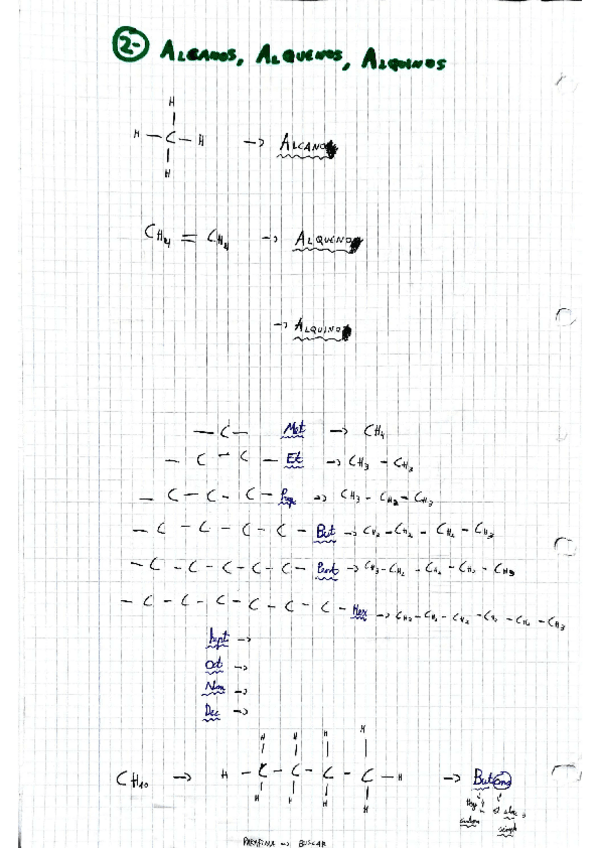 2- ALCANOS, ALQUENOS, ALQUINOS
H
H — C — H -> ALCANO
H
CH4 = CH4 -> ALQUENO
-> ALQUINO
— C — Met -> CH4
— C — C — Et -> CH3 - CH3
— C — C — C — Prop -> CH3 - CH2 - CH3
— C — C — C — C — But -> CH3 - CH2 - CH2 - CH3
— C — C — C — C — C — Pent -> CH3 - CH2 - CH2 - CH2 - CH3
— C — C — C — C — C — C — Hex -> CH3 - CH2 - CH2 - CH2 - CH2 - CH3
Hept ->
Oct ->
Non ->
Dec ->
H H H H
CH10 -> H — C — C — C — C — H -> Butano
H H H H
Hay 4
carbonos simple
PARAFINA -> BUSCAR